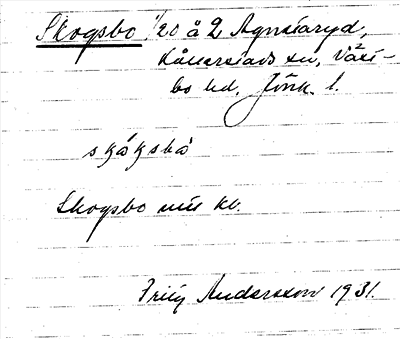 Skogsbo 1/20 å 2 Agnetaryd,
Kållerstads sn, Väst-
bo hd, Jönk. l.
skåksbå
Skogsbo
Fritz Andersson 1931.